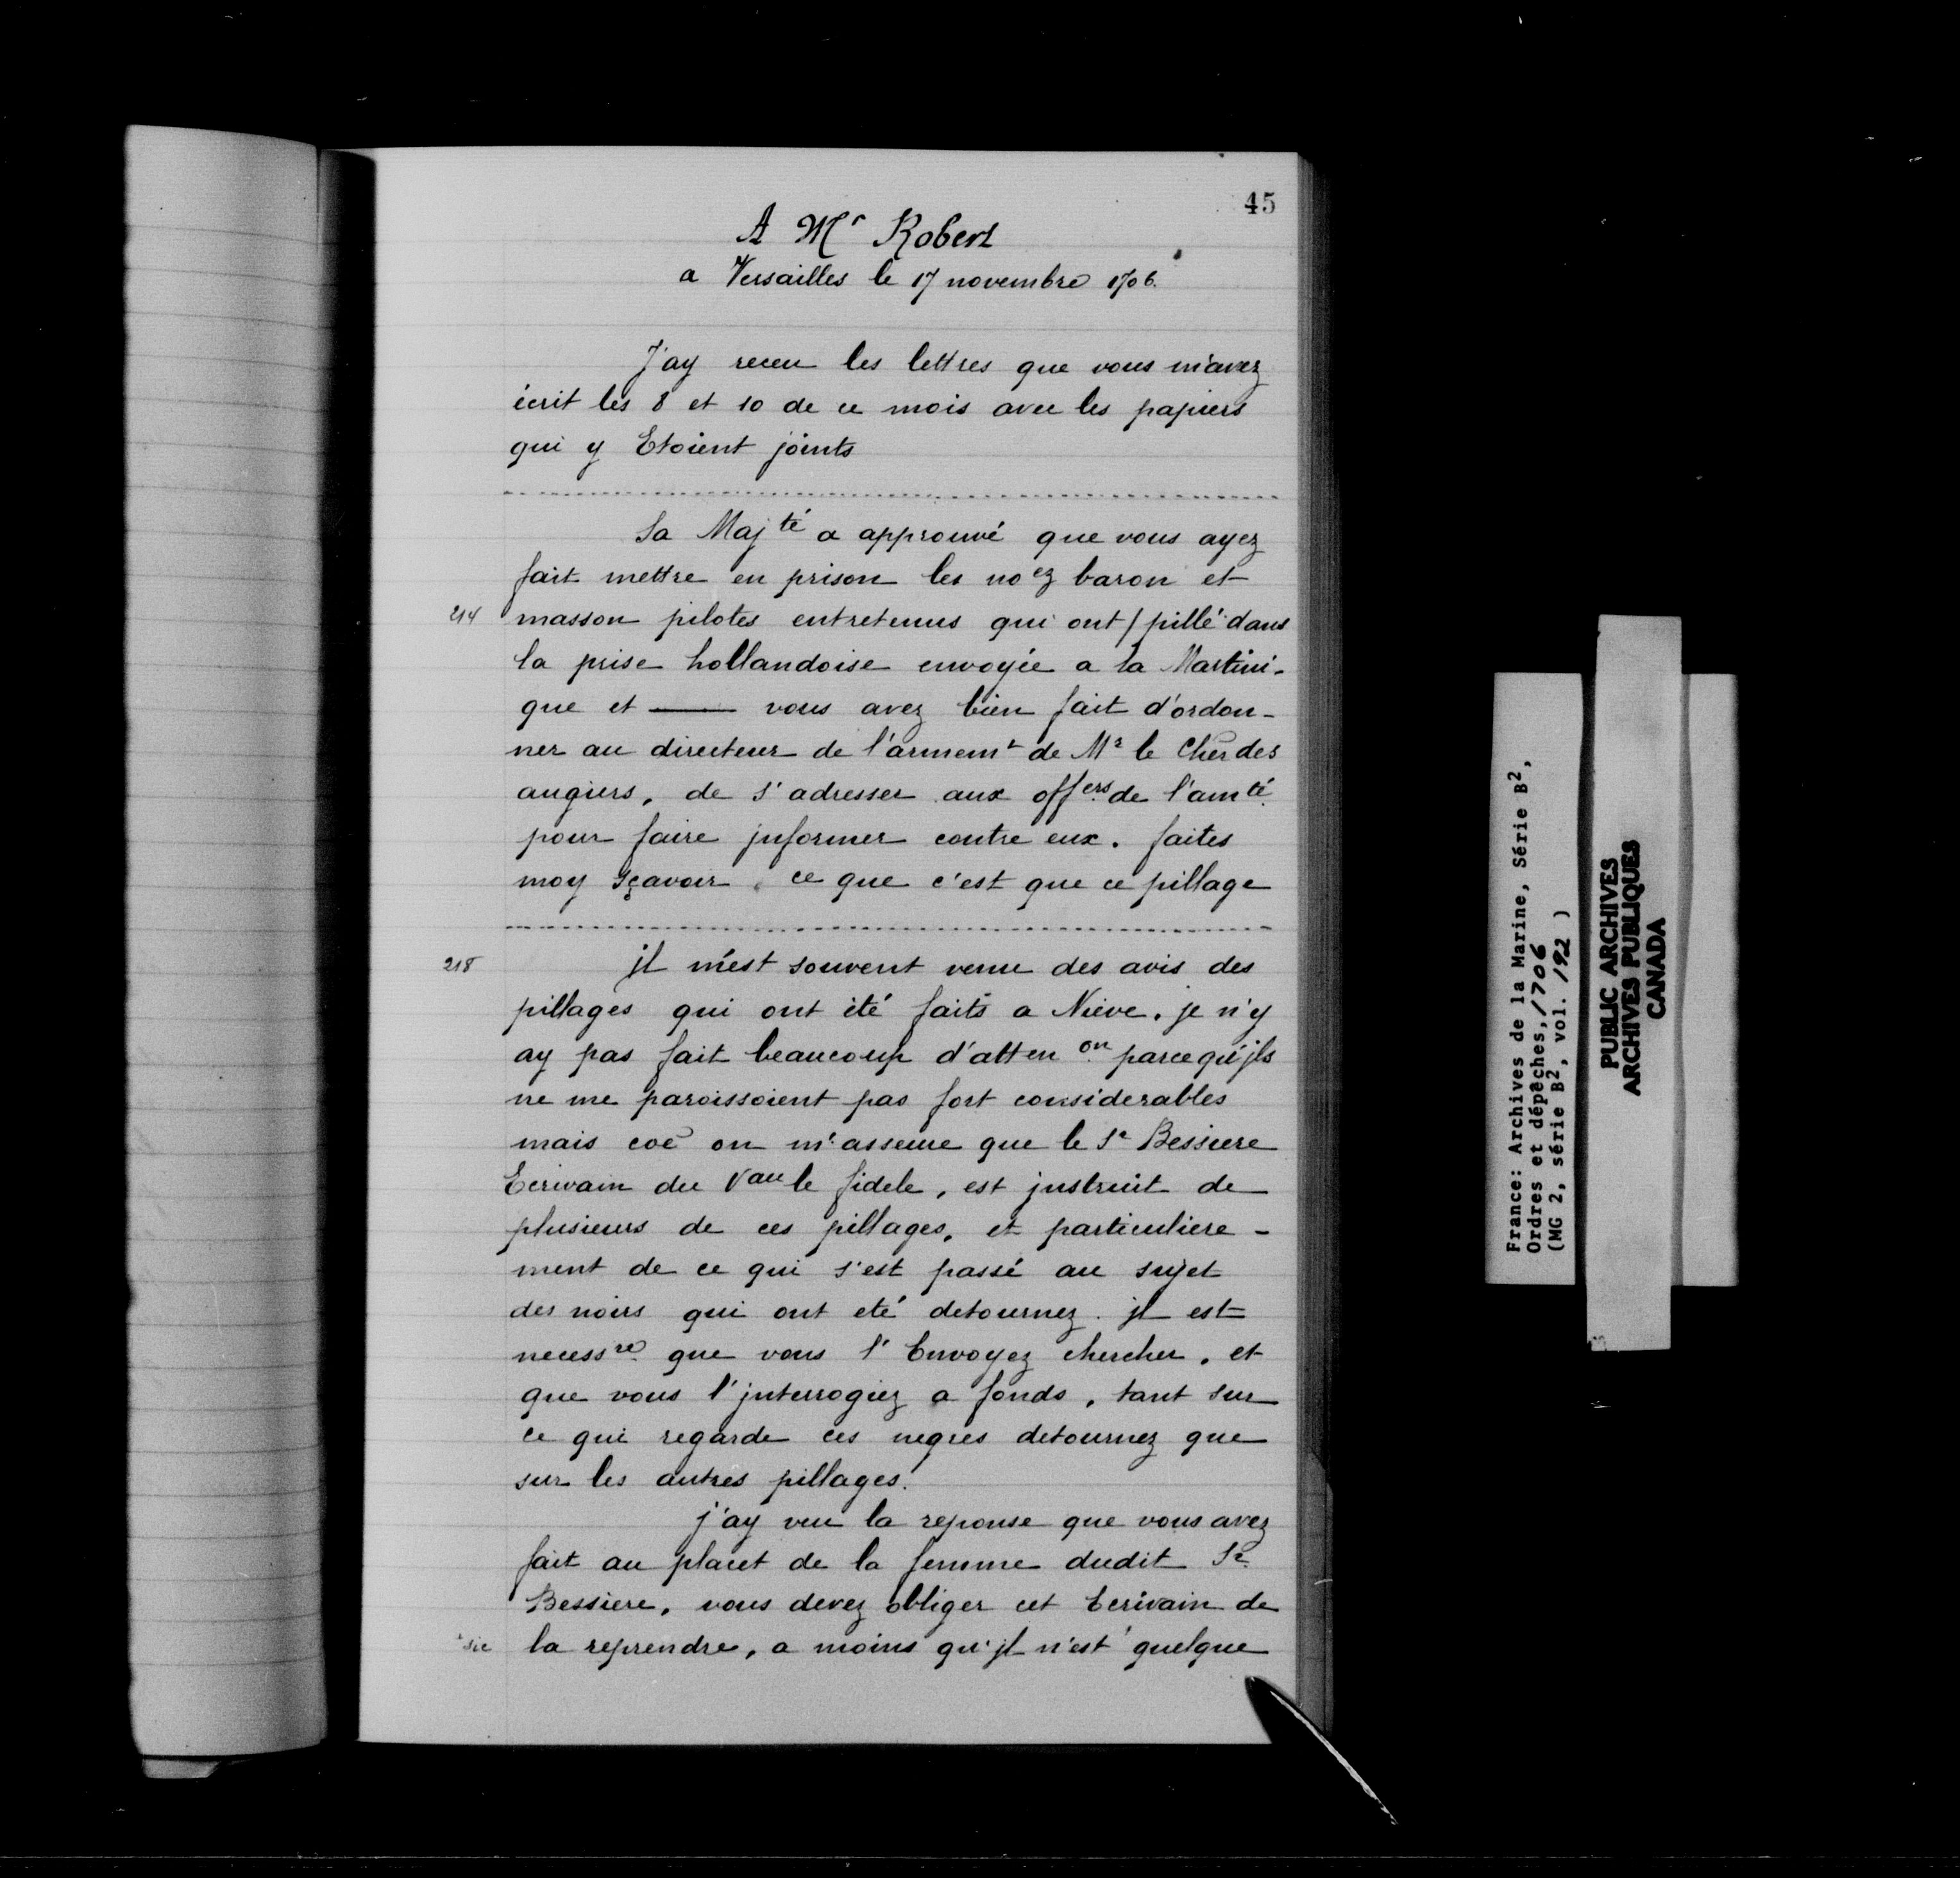 45
A Mr Robert
a Versailles le 17 novembre 1706.
J'ay receu les lettres que vous m'avez
écrit les 8 et 10 de ce mois avec les papiers
qui y Etoient joints
Sa Majté a approuvé que vous ayez
fait mettre en prison les noez baron et
214 masson pilotes entretenus qui ont / pillé dans
la prise hollandoise envoyée a la Martini-
que et — vous avez bien fait d'ordon-
ner au directeur de l'armemt de Mr le Cher des
augiers, de s'adresser aux offers de l'amté
pour faire jnformer contre eux. faites
moy sçavoir ce que c'est que ce pillage
218 jl m'est souvent venu des avis des
pillages qui ont été faits a Nieve. je n'y
ay pas fait beaucoup d'atten on parcequ'jls
ne me paroissoient pas fort considerables
mais coe on m'asseure que le Sr Bessiere
Ecrivain du Vau le fidele, est jnstruit de
plusieurs de ces pillages, et particuliere-
ment de ce qui s'est passé au sujet
des noirs qui ont eté detournez. jl est
necessre que vous l'Envoyez chercher, et
que vous l'jnterrogiez a fonds, tant sur
ce qui regarde ces negres detournez que
sur les autres pillages.
j'ay veu la reponse que vous avez
fait au placet de la femme dudit Sr
Bessiere, vous devez obliger cet Ecrivain de
sic la reprendre, a moins qu'jl n'est quelque
France: Archives de la Marine, Série B2,
Ordres et dépêches, 1706
(MG 2, série B2, vol. 192 )
PUBLIC ARCHIVES
ARCHIVES PUBLIQUES
CANADA